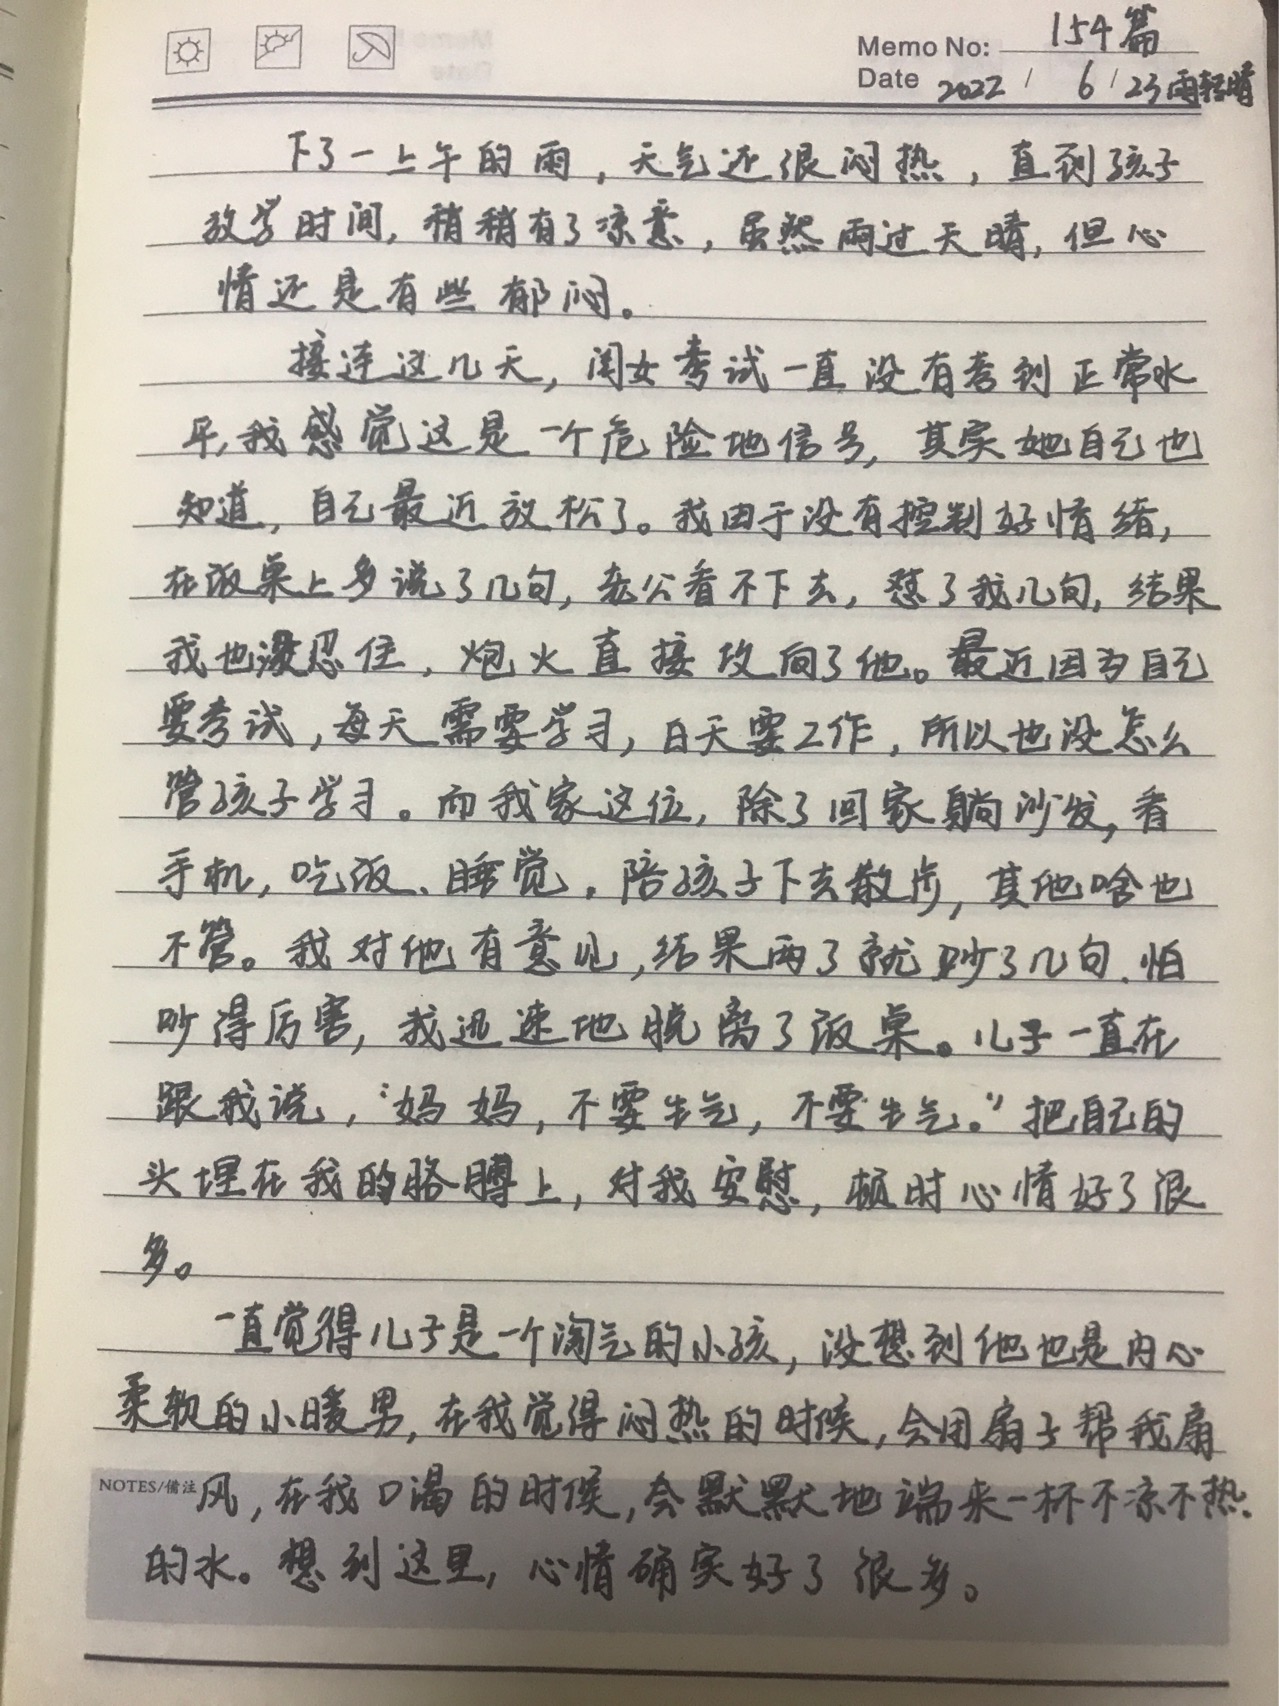 Memo No: 154篇
Date 2022 / 6 / 23 雨转晴
下了一上午的雨，天气还很闷热，直到孩子
放学时间，稍稍有了凉意，虽然雨过天晴，但心
情还是有些郁闷。
接连这几天，闺女考试一直没有考到正常水
平，我感觉这是一个危险地信号，其实她自己也
知道，自己最近放松了。我由于没有控制好情绪，
在饭桌上多说了几句，老公看不下去，怼了我几句，结果
我也没忍住，炮火直接攻向了他。最近因为自己
要考试，每天需要学习，白天要工作，所以也没怎么
管孩子学习。而我家这位，除了回家躺沙发，看
手机，吃饭、睡觉，陪孩子下去散步，其他啥也
不管。我对他有意见，结果两了就吵了几句，怕
吵得厉害，我迅速地脱离了饭桌。儿子一直在
跟我说，“妈妈，不要生气，不要生气。”把自己的
头埋在我的胳膊上，对我安慰，顿时心情好了很
多。
一直觉得儿子是一个淘气的小孩，没想到他也是内心
柔软的小暖男，在我觉得闷热的时候，会用扇子帮我扇
NOTES/备注 风，在我口渴的时候，会默默地端来一杯不凉不热
的水。想到这里，心情确实好了很多。